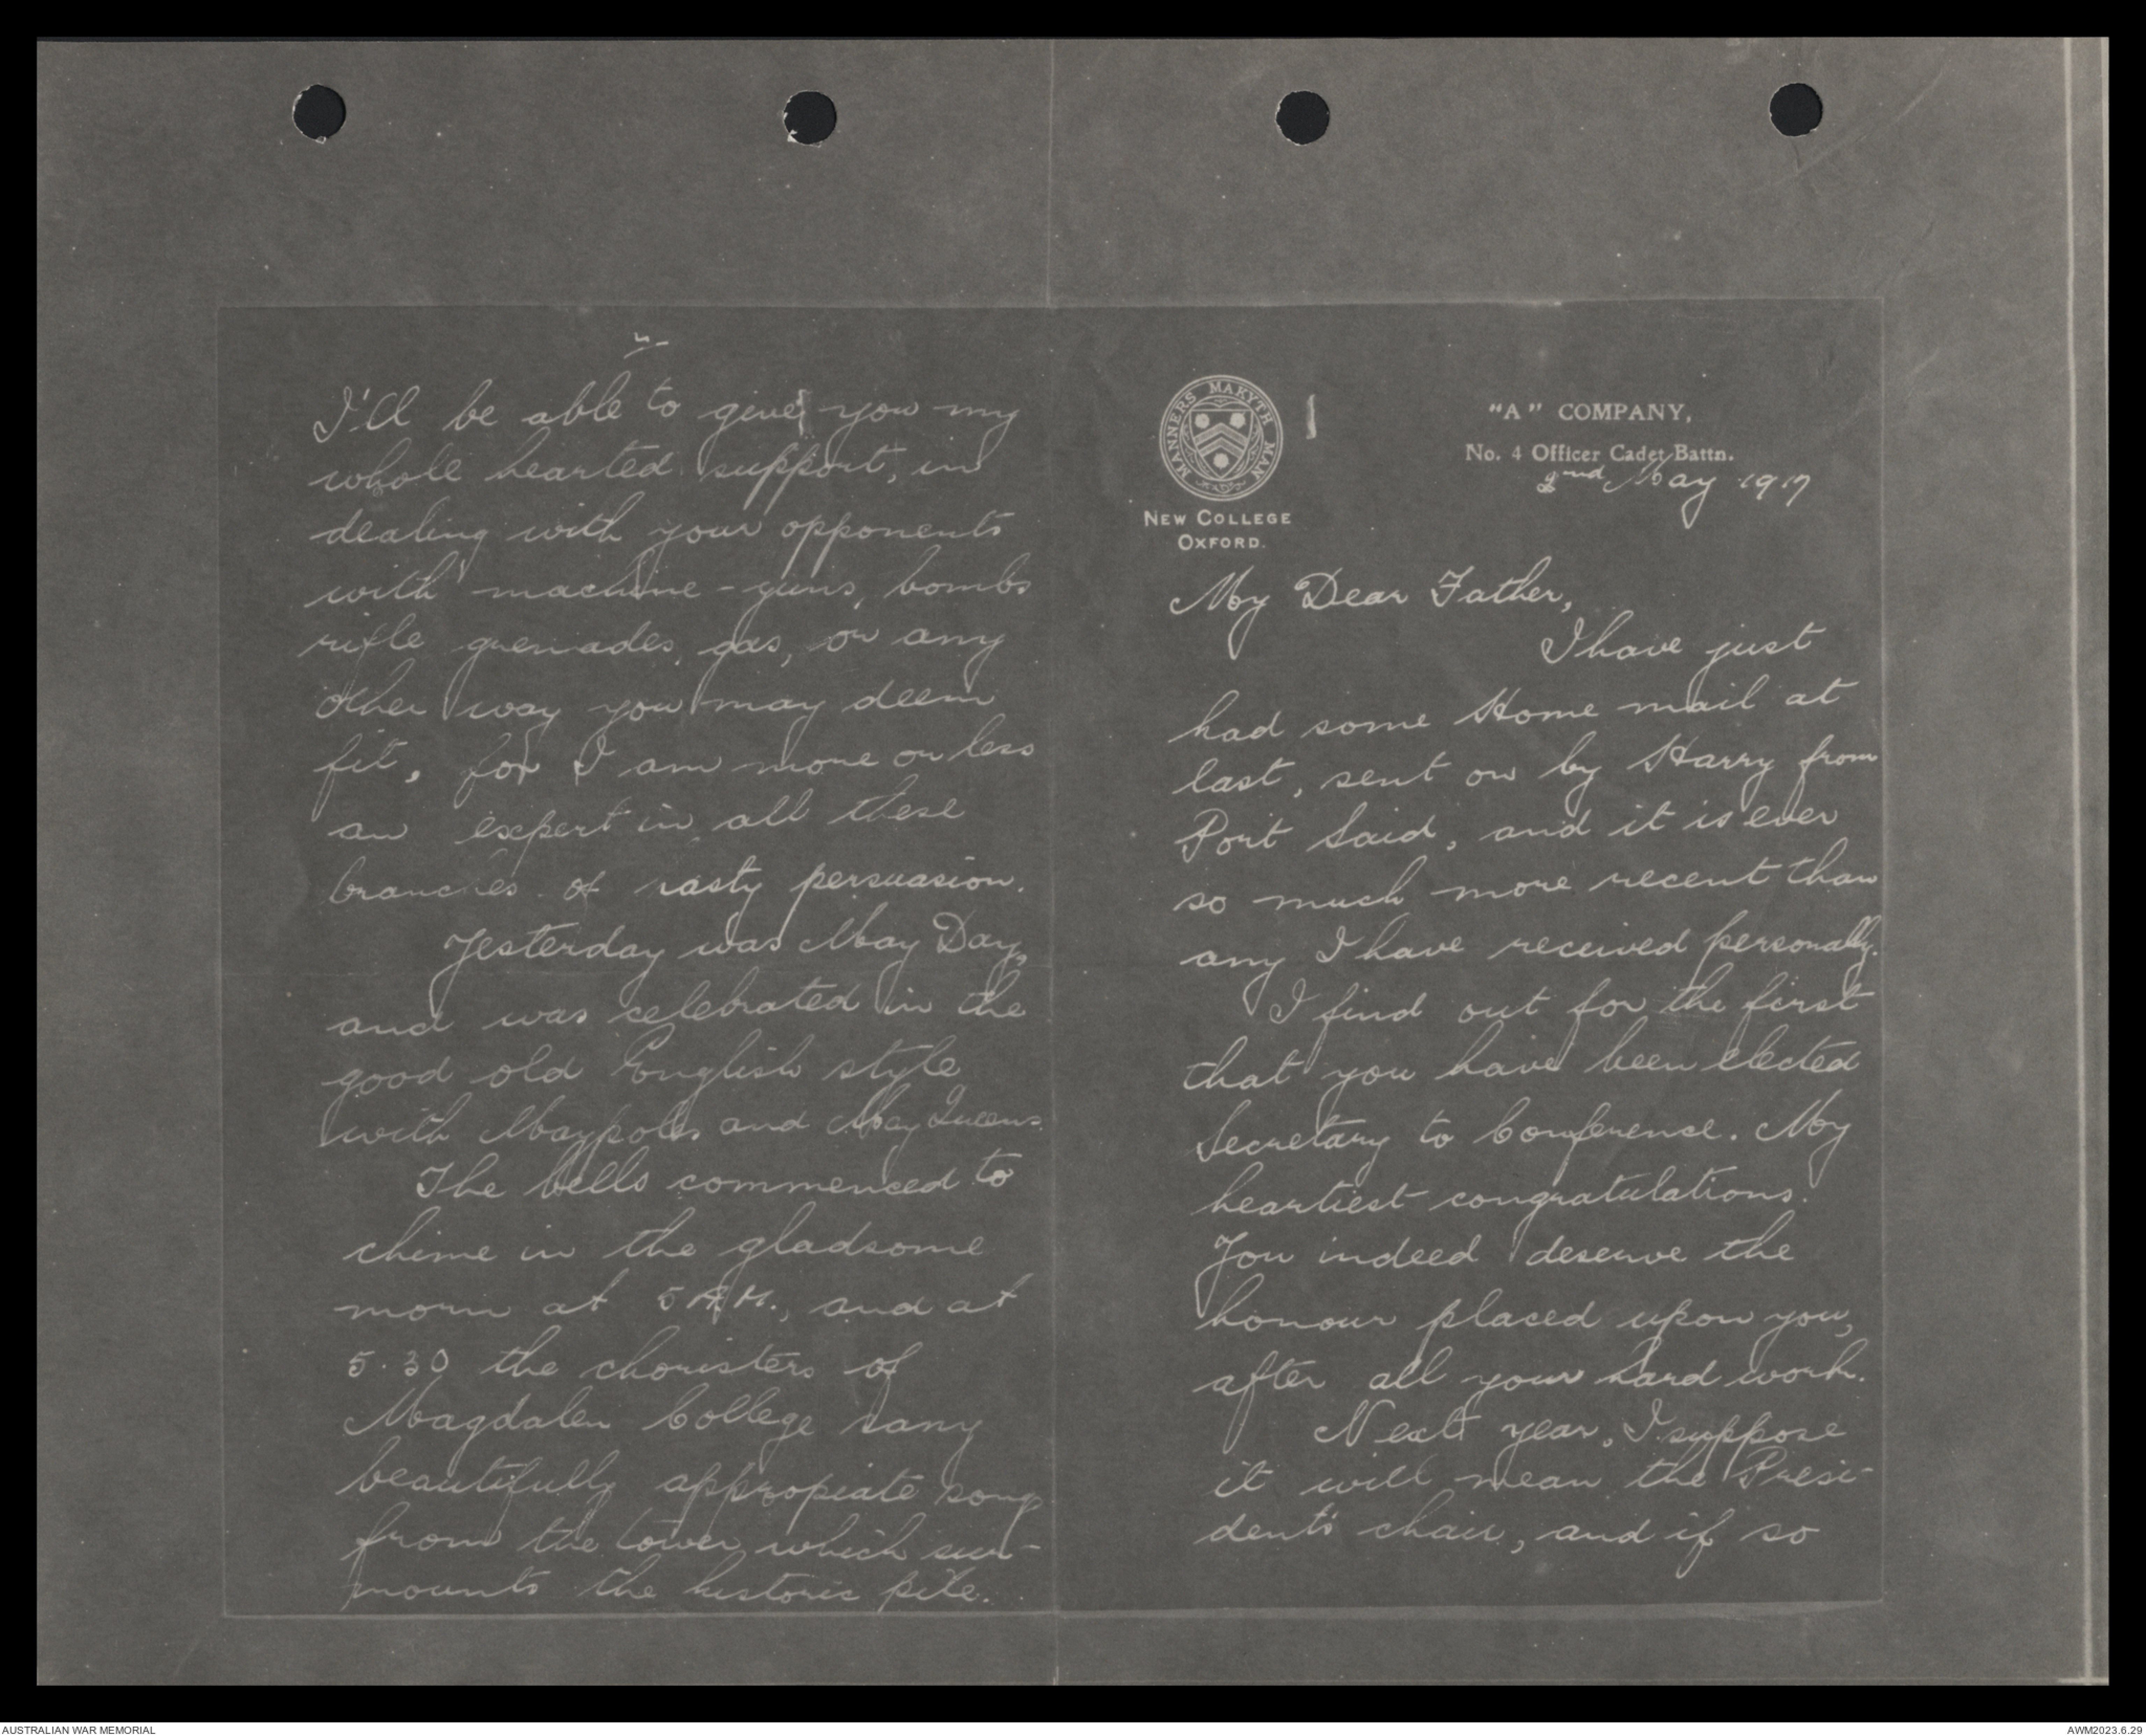 MANNERS MAKYTH MAN
NEW COLLEGE
OXFORD.
"A" COMPANY,
No. 4 Officer Cadet Battn.
2nd May 1917
My Dear Father,
I have just
had some Home mail at
last, sent on by Harry from
Port Said, and it is ever
so much more recent than
any I have received personally.
I find out for the first
that you have been elected
Secretary to Conference. My
heartiest congratulations.
You indeed deserve the
honour placed upon you,
after all your hard work.
Next year, I suppose
it will mean the Presi-
dent's chair, and if so
I'll be able to give you my
whole hearted support, in
dealing with your opponents
with machine-guns, bombs
rifle grenades, gas, or any
other way you may deem
fit, for I am more or less
an expert in all these
branches of nasty persuasion.
Yesterday was May Day,
and was celebrated in the
good old English style
with Maypoles and May Queens.
The bells commenced to
chime in the gladsome
morn at 5 A.M., and at
5.30 the choristers of
Magdalen College sang
beautifully appropiate song
from the tower which sur-
mounts the historic pile.
AUSTRALIAN WAR MEMORIAL
AWM2023.6.29